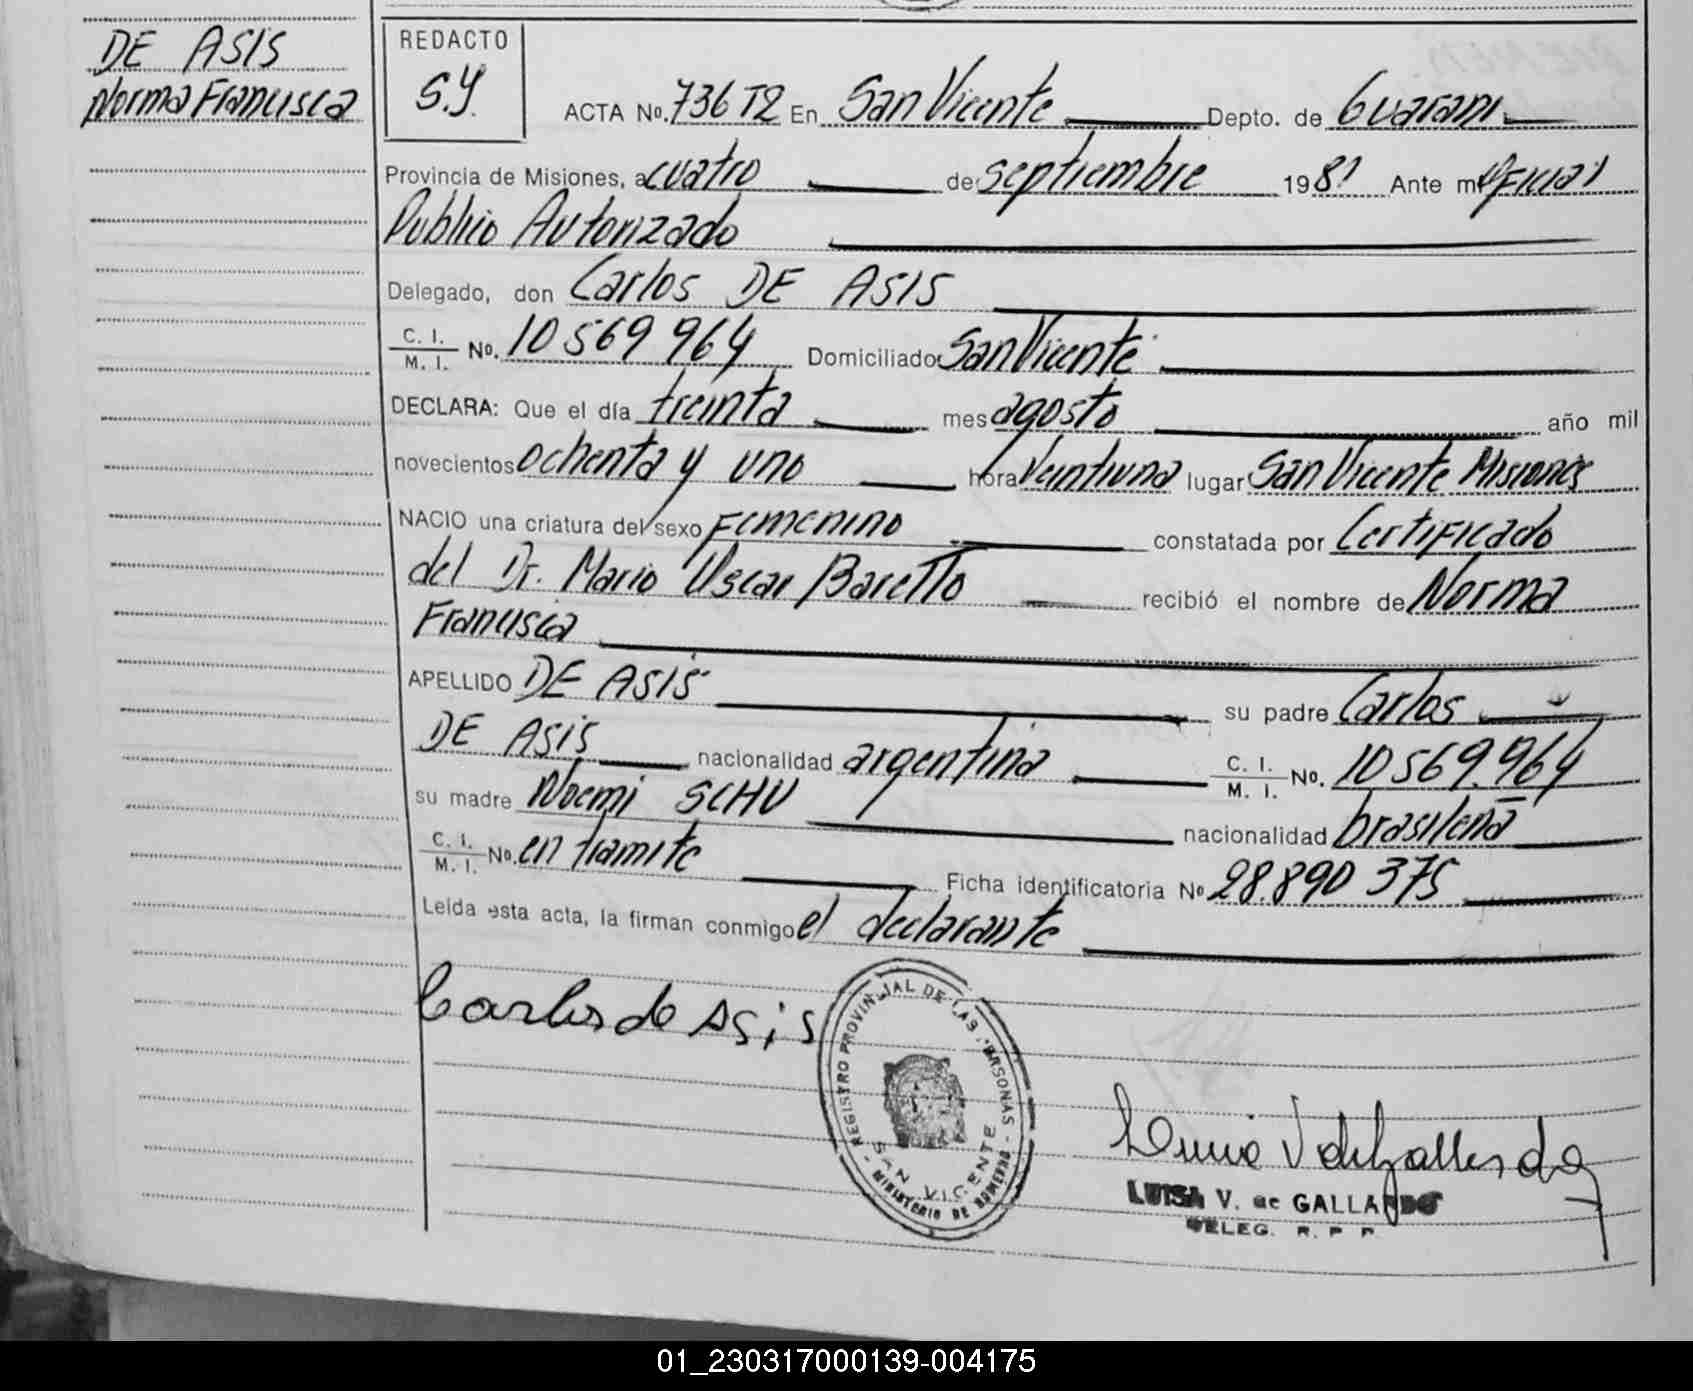 DE ASIS
Norma Francisca
REDACTO
S.Y.
ACTA No. 736 T2 En San Vicente Depto. de Guarani
Provincia de Misiones, a cuatro de septiembre 1981 Ante mi Oficial
Publico Autorizado
Delegado, don Carlos DE ASIS
C. I. M. I. No. 10 569 964 Domiciliado San Vicente
DECLARA: Que el día treinta mes agosto año mil
novecientos ochenta y uno hora veintiuna lugar San Vicente Misiones
NACIO una criatura del sexo Femenino constatada por Certificado
del Dr. Mario Oscar Baretto recibió el nombre de Norma
Francisca
APELLIDO DE ASIS su padre Carlos
DE ASIS nacionalidad argentina C. I. M. I. No. 10 569.964
su madre Noemi SCHU nacionalidad brasileña
C. I. M. I. No. en tramite Ficha identificatoria No 28.890 375
Leída esta acta, la firman conmigo el declarante
Carlos de Asis
REGISTRO PROVINCIAL DE LAS PERSONAS
SAN VICENTE
MINISTERIO DE GOBIERNO
LUISA V. de GALLARDO
DELEG. R. P. P.
01_230317000139-004175